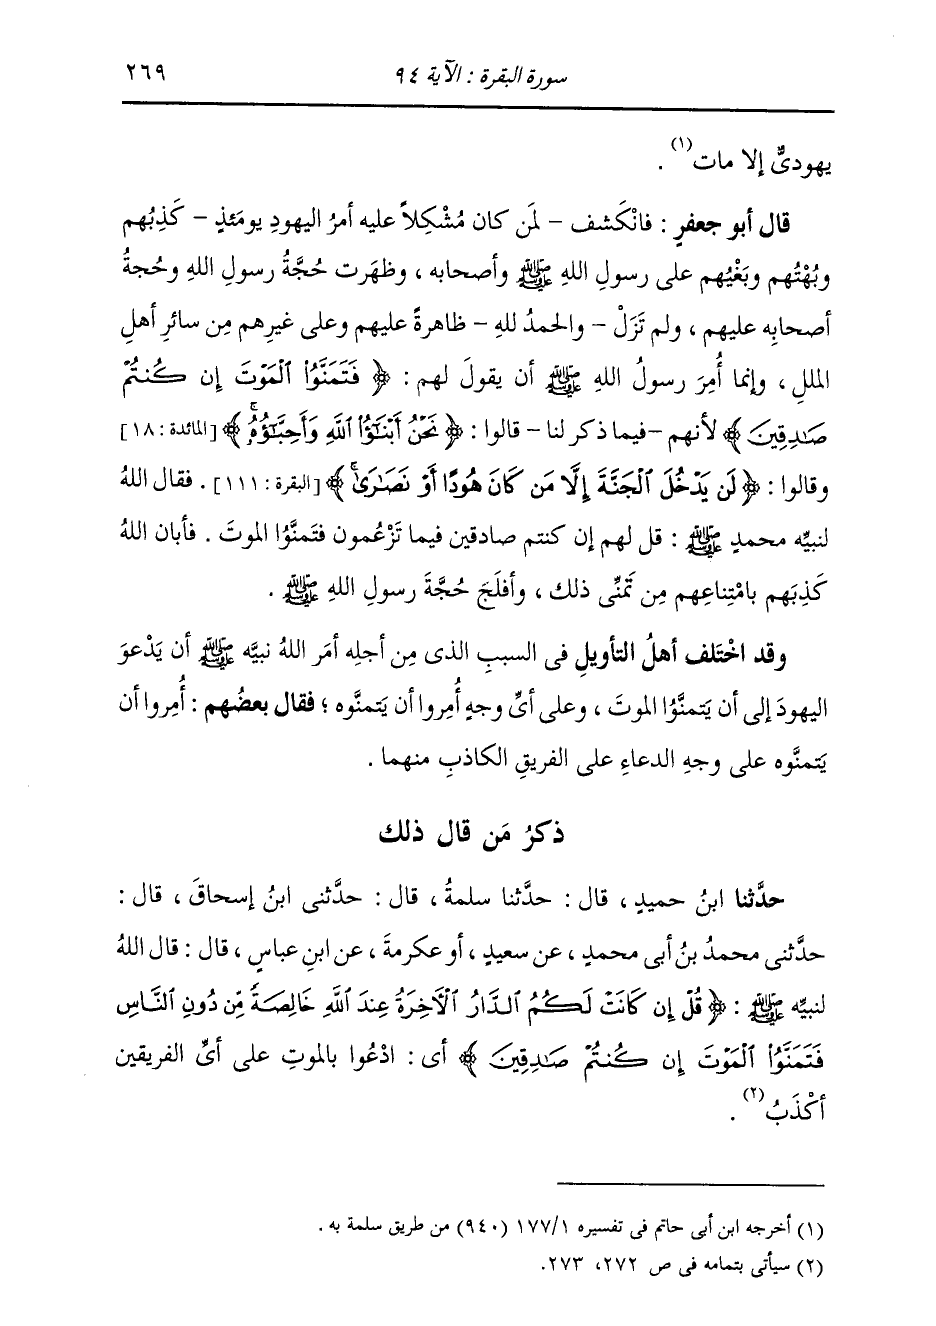 سورة البقرة : الآية ٩٤ ٢٦٩
يهودىٌّ إلا مات(١) .
قال أبو جعفرٍ : فانْكَشف – لمَن كان مُشْكِلاً عليه أمرُ اليهودِ يومَئذٍ – كَذِبُهم
وبُهْتُهم وبَغْيُهم على رسولِ اللهِ ﷺ وأصحابه ، وظهَرت حُجَّةُ رسولِ اللهِ وحُجةُ
أصحابِه عليهم ، ولم تَزَلْ – والحمدُ للهِ – ظاهرةً عليهم وعلى غيرِهم مِن سائرِ أهلِ
المللِ ، وإنما أُمِرَ رسولُ اللهِ ﷺ أن يقولَ لهم : ﴿ فَتَمَنَّوُاْ ٱلْمَوْتَ إِن كُنتُمْ
صَٰدِقِينَ ﴾ لأنهم –فيما ذكر لنا– قالوا : ﴿ نَحْنُ أَبْنَٰٓؤُاْ ٱللَّهِ وَأَحِبَّٰٓؤُهُۥۚ ﴾ [المائدة : ١٨]
وقالوا : ﴿ لَن يَدْخُلَ ٱلْجَنَّةَ إِلَّا مَن كَانَ هُودًا أَوْ نَصَٰرَىٰۗ ﴾ [البقرة : ١١١] . فقال اللهُ
لنبيِّه محمدٍ ﷺ : قل لهم إن كنتم صادقين فيما تَزْعُمون فتَمنَّوُا الموتَ . فأبان اللهُ
كَذِبَهم بامْتِناعِهم مِن تَمَنِّى ذلك ، وأفلَجَ حُجَّةَ رسولِ اللهِ ﷺ .
وقد اخْتَلف أهلُ التأويلِ فى السببِ الذى مِن أجلِه أمَر اللهُ نبيَّه ﷺ أن يَدْعوَ
اليهودَ إلى أن يَتمنَّوُا الموتَ ، وعلى أىِّ وجهٍ أُمِروا أن يَتمنَّوه ؛ فقال بعضُهم : أُمِروا أن
يَتمنَّوه على وجهِ الدعاءِ على الفريقِ الكاذبِ منهما .
ذكرُ مَن قال ذلك
حدَّثنا ابنُ حميدٍ ، قال : حدَّثنا سلمةُ ، قال : حدَّثنى ابنُ إسحاقَ ، قال :
حدَّثنى محمدُ بنُ أبى محمدٍ ، عن سعيدٍ ، أو عكرمةَ ، عن ابنِ عباسٍ ، قال : قال اللهُ
لنبيِّه ﷺ : ﴿ قُلْ إِن كَانَتْ لَكُمُ ٱلدَّارُ ٱلْأَخِرَةُ عِندَ ٱللَّهِ خَالِصَةً مِّن دُونِ ٱلنَّاسِ
فَتَمَنَّوُاْ ٱلْمَوْتَ إِن كُنتُمْ صَٰدِقِينَ ﴾ أى : ادْعُوا بالموتِ على أىِّ الفريقين
أكْذَبُ(٢) .
(١) أخرجه ابن أبى حاتم فى تفسيره ١٧٧/١ (٩٤٠) من طريق سلمة به .
(٢) سيأتى بتمامه فى ص ٢٧٢، ٢٧٣.